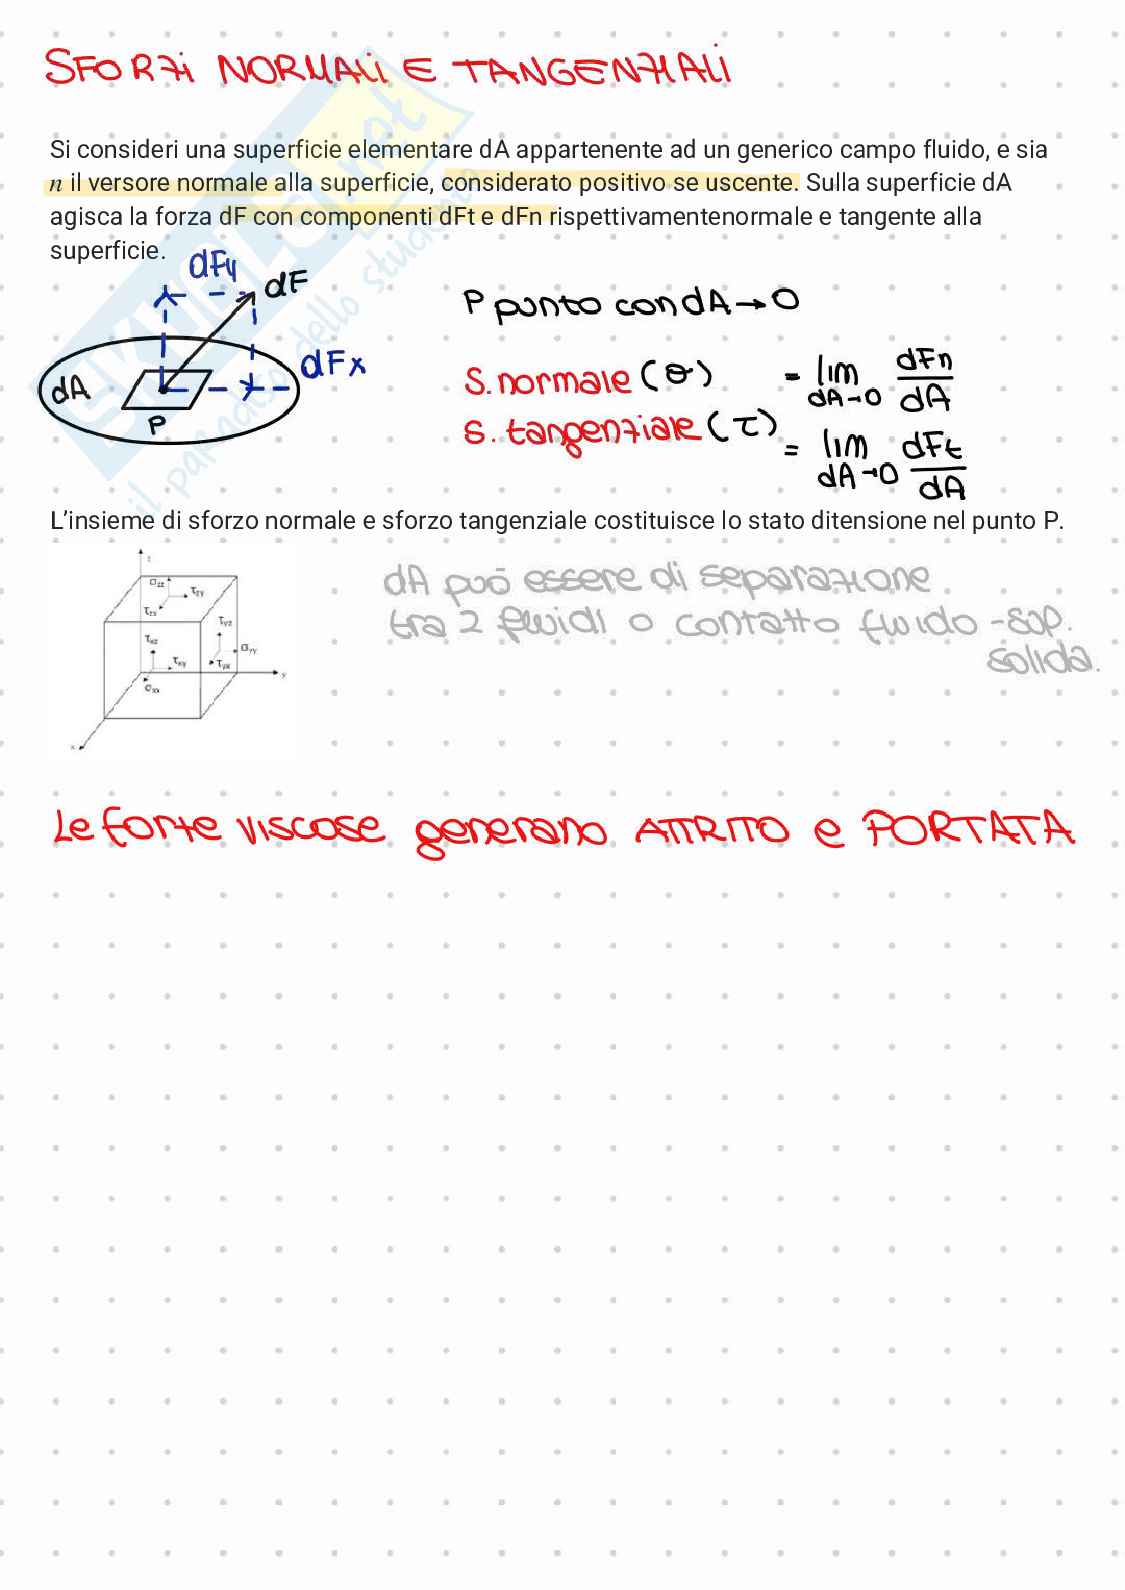 SFORZI NORMALI E TANGENZIALI
Si consideri una superficie elementare dA appartenente ad un generico campo fluido, e sia
n il versore normale alla superficie, considerato positivo se uscente. Sulla superficie dA
agisca la forza dF con componenti dFt e dFn rispettivamentenormale e tangente alla
superficie.
dFy
dF
dFx
dA
P
P punto con dA→0
S. normale (θ) = lim dA→0 dFn/dA
S. tangenziale (τ) = lim dA→0 dFt/dA
L'insieme di sforzo normale e sforzo tangenziale costituisce lo stato ditensione nel punto P.
z
σzz
τzy
τzx
τyz
τxz
σyy
τxy
τyx
σxx
y
x
dA può essere di separazione
tra 2 fluidi o contatto fluido - sup.
solida.
Le forze viscose generano ATTRITO e PORTATA
SKUOLA.net
il paradiso dello studente